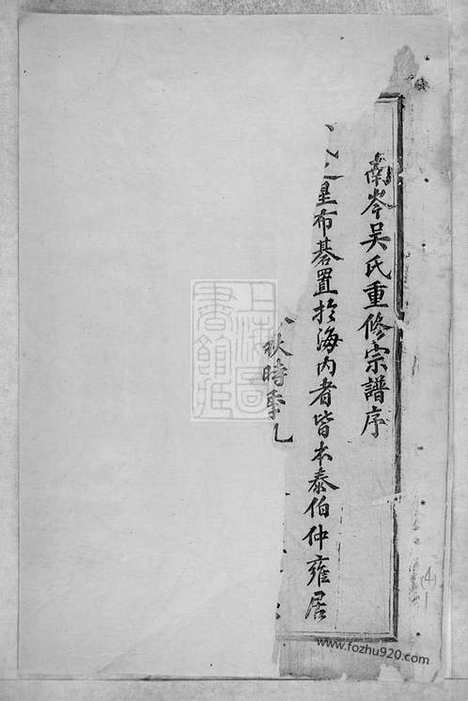 南岑吴氏重修宗譜序
星布碁置於海内者皆本泰伯仲雍居
秋時季札
上海圖書館藏
www.fozhu920.com